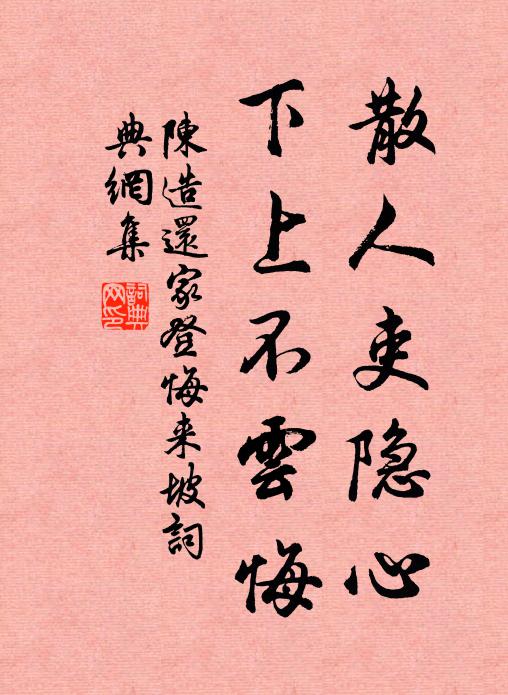 散人吏隐心
下上不雲悔
陳造還家登悔来坡詞
典網集
詞典網印